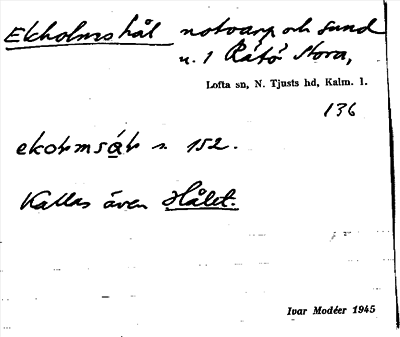 Ekholmshål notvarp och sund
n. 1 Rätö Stora,
Lofta sn, N. Tjusts hd, Kalm. l.
136
s. 152.
Kallas även Hålet.
Ivar Modéer 1945